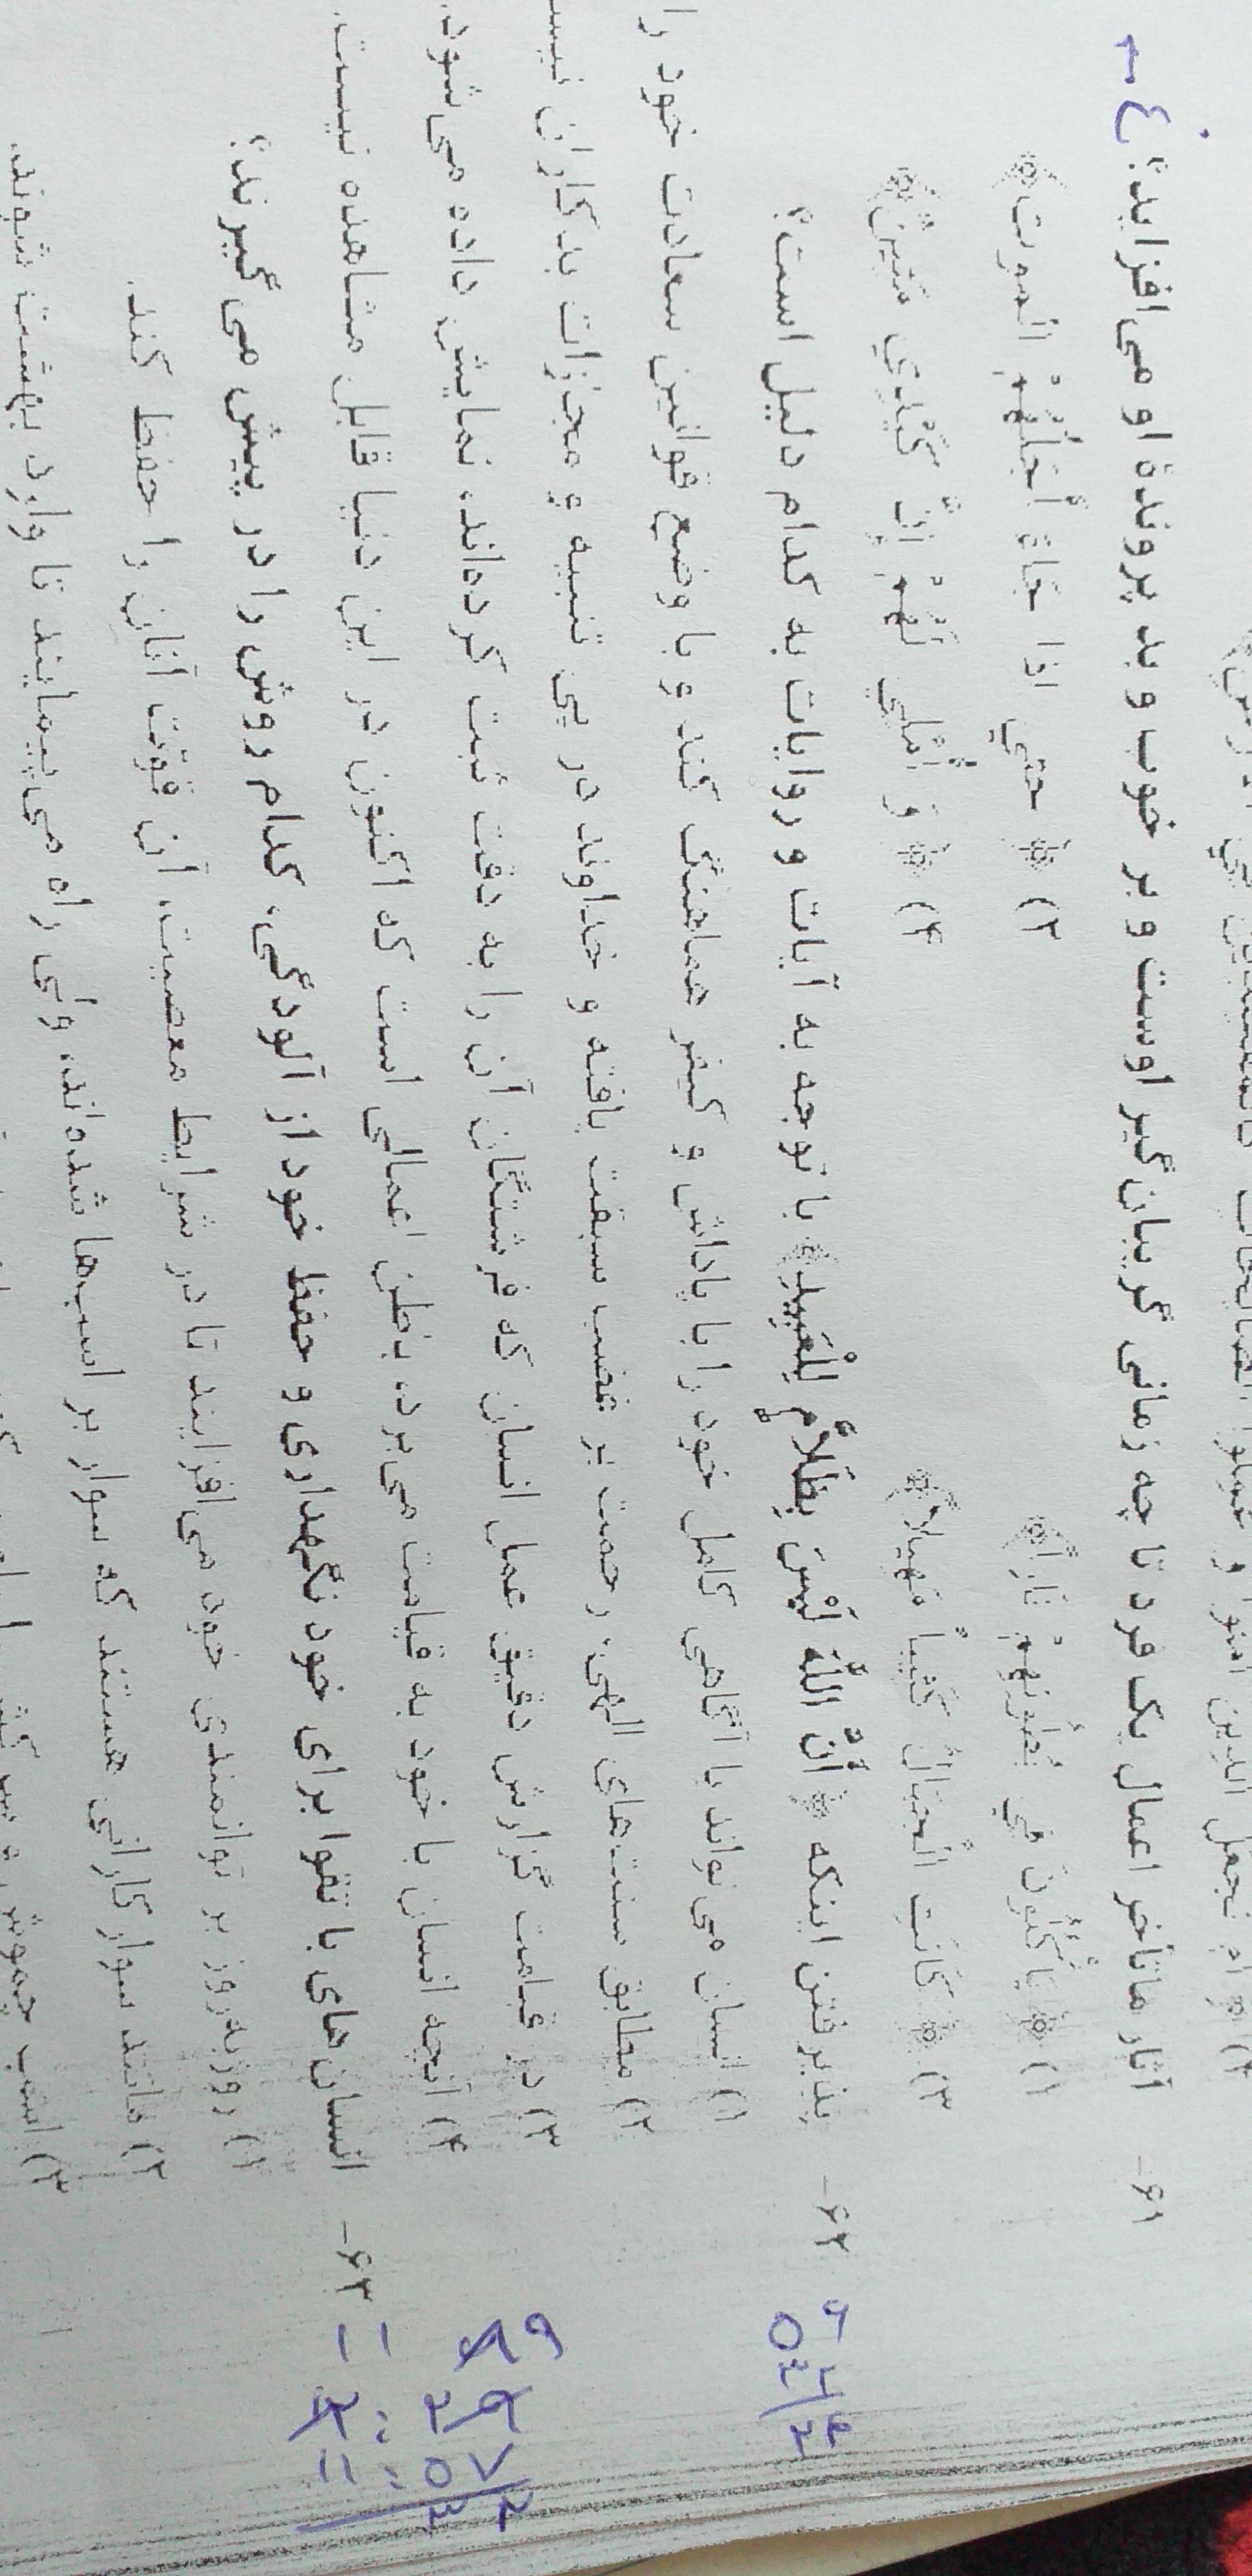 ۴) ﴿ ام نجعل الذین آمنوا و عملوا الصالحات کالمفسدین في
۶۱- آثار ماتأخر اعمال یک فرد تا چه زمانی گریبان‌گیر اوست و بر خوب و بد پروندهٔ او می‌افزاید؟
۱) ﴿ یَأکُلُونَ في بُطُونِهِمْ نَاراً ﴾
۲) ﴿ حتي اذا جَاءَ أَجَلُهُمْ الموت ﴾
۳) ﴿ کَانَتِ الْجِبَالُ کَثِیباً مَهِیلاً ﴾
۴) ﴿ وَ أُمْلِي لَهُمْ إِنَّ کَیْدِي مَتِینٌ ﴾
۶۲- پذیرفتن اینکه ﴿ أَنَّ اللَّهَ لَیْسَ بِظَلاَّمٍ لِلْعَبِیدِ ﴾ با توجه به آیات و روایات به کدام دلیل است؟
۱) انسان می‌تواند با آگاهی کامل خود را با پاداش و کیفر هماهنگ کند و با وضع قوانین سعادت خود را
۲) مطابق سنت‌های الهی، رحمت بر غضب سبقت یافته و خداوند در پی تنبیه و مجازات بدکاران
۳) در قیامت گزارش دقیق عمل انسان که فرشتگان آن را به دقت ثبت کرده‌اند، نمایش داده می‌شود.
۴) آنچه انسان با خود به قیامت می‌برد، باطن اعمالی است که اکنون در این دنیا قابل مشاهده نیست.
۶۳- انسان‌های با تقوا برای خود نگهداری و حفظ خود از آلودگی، کدام روش را در پیش می‌گیرند؟
۱) روزبه‌روز بر توانمندی خود می‌افزایند تا در شرایط معصیت، آن قوّت آنان را حفظ کند.
۲) مانند سوارکارانی هستند که سوار بر اسب‌ها شده‌اند، ولی راه می‌پیمایند تا وارد بهشت شوند.
۳) اسب چموش و سرکش
۱۱
۱۱:۵۷
۳۲